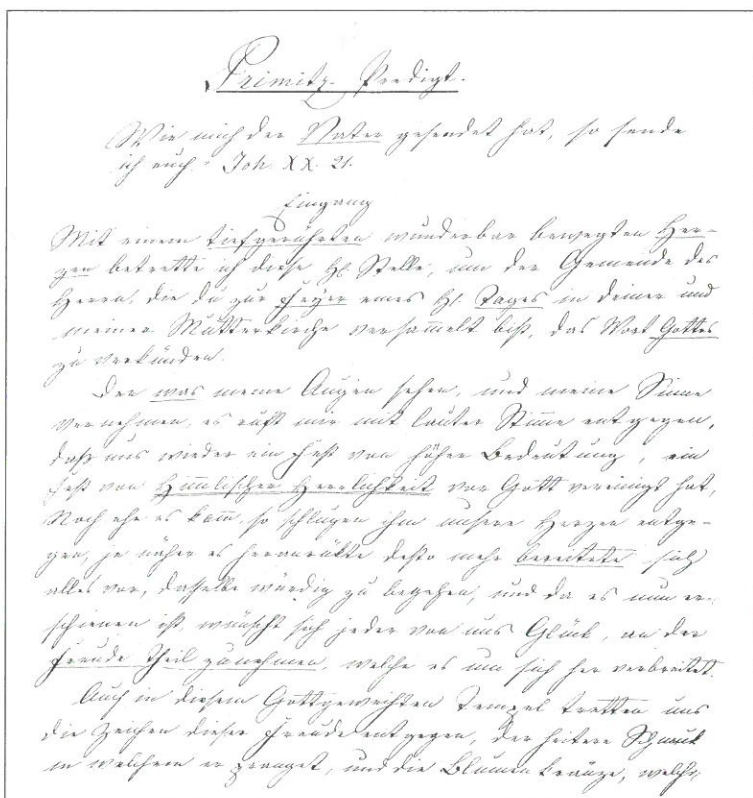 Primitz-Predigt.
Wie mich der Vater gesendet hat, so sende
ich euch. Joh. XX. 21.
Eingang
Mit einem tiefgerührten wunderbar bewegten Her-
zen betrette ich diese Hl. Stelle, um der Gemeinde des
Herrn, die du zur Feyer eines Hl. Tages in deiner und
meiner Mutterkirche versammelt bist, das Wort Gottes
zu verkünden.
Den was meine Augen sehen, und meine Sinne
vernehmen, es ruft mir mit lauter Stimme entgegen,
daß uns wieder ein Fest von hoher Bedeutung, ein
Fest von Himmlischer Herrlichkeit vor Gott vereinigt hat,
Noch ehe es kam, so schlugen ihm unsere Herzen entge-
gen, je näher es heranrükte desto mehr bereitete sich
alles vor, dasselbe würdig zu begehen, und da es nun er-
schienen ist wünscht sich jeder von uns Glück, an der
Freude Theil zu nehmen, welche es um sich her verbreitet.
Auch in diesem Gottgeweihten Tempel tretten uns
die Zeichen dieser Freude entgegen, der heitere Schmuk
in welchem er pranget, und die Blumenkränze, welche